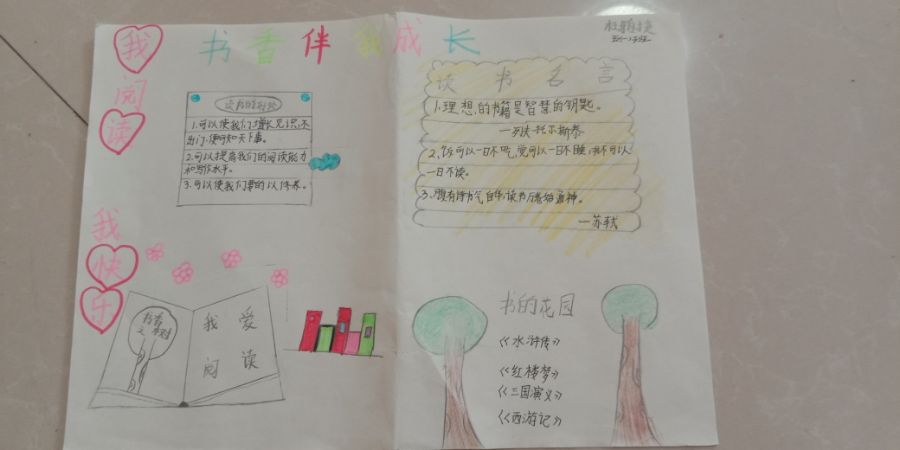 书香伴我成长
我阅读
我快乐
读书的好处
1.可以使我们增长见识,不
出门,便可知天下事。
2.可以提高我们的阅读能力
和写作水平。
3.可以使我们
书香
我爱
阅读
读书名言
1.理想的书籍是智慧的钥匙。
—列夫·托尔斯泰
2、饭可以一日不吃,觉可以一日不睡,书不可以
一日不读。
3、腹有诗书气自华,读书万卷始通神。
—苏轼
书的花园
《水浒传》
《红楼梦》
《三国演义》
《西游记》